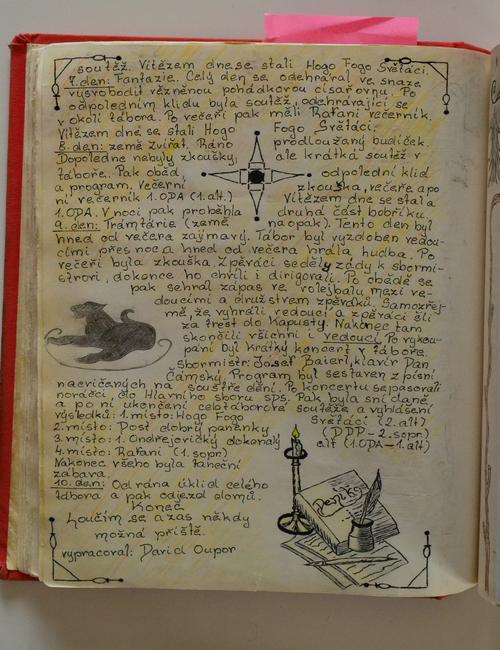 soutěž. Vítězem dne se stali Hogo Fogo Světáci.
7.den: Fantazie. Celý den se odehrával ve snaze
vysvobodit vězněnou pohádkovou císařovnu. Po
odpoledním klidu byla soutěž, odehrávající se
v okolí tábora. Po večeři pak měli Rafani večerník.
Vítězem dne se stali Hogo Fogo Světáci.
8.den: země zvířat. Ráno prodloužený budíček.
Dopoledne nebyly zkoušky, ale krátká soutěž v
táboře. Pak oběd, odpolední klid
a program. Večerní zkouška, večeře a po
ní večerník 1.ODA (1.alt) Vítězem dne se stala
1.ODA. V noci pak proběhla druhá část bobříku.
9.den: Tramtárie (země naopak). Tento den byl
hned od večera zajímavý. Tábor byl vyzdoben vedou-
cími přes noc a hned od večera hrála hudba. Po
večeři byla zkouška. Zpěváci seděly zády k sbormi-
strovi, dokonce ho chvíli i dirigovali. Po obědě se
pak sehrál zápas ve volejbalu mezi ve-
doucími a družstvem zpěváků. Samozřej-
mě, že vyhráli vedoucí a zpěváci šli
za trest do Kapusty. Nakonec tam
skončili všichni i vedoucí. Po vykou-
pání byl krátký koncert v táboře.
Sbormistr: Josef Baierl, klavír Dan
Čámský. Program byl sestaven z písní
nacvičených na soustředění. Po koncertu se pasovali
noráčci do Hlavního sboru SPS. Pak byla snídaně
a po ní ukončení celotáborové soutěže a vyhlášení
výsledků: 1.místo: Hogo Fogo Světáci (2.alt)
2.místo: Dost dobrý parťénky (DDP-2.sopr)
3.místo: 1. Ondřejovičky dokonalý alt (1.ODA-1.alt)
4.místo: Rafani (1.sopr)
Nakonec všeho byla taneční
zábava.
10.den: Od rána úklid celého
tábora a pak odjezd domů.
Konec
Loučím se a zas někdy
možná příště.
vypracoval: David Oupor
Deník